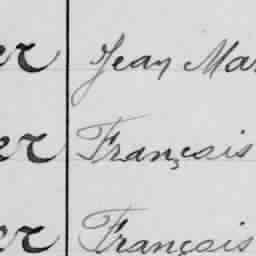 er Jean Mar
er François
er François